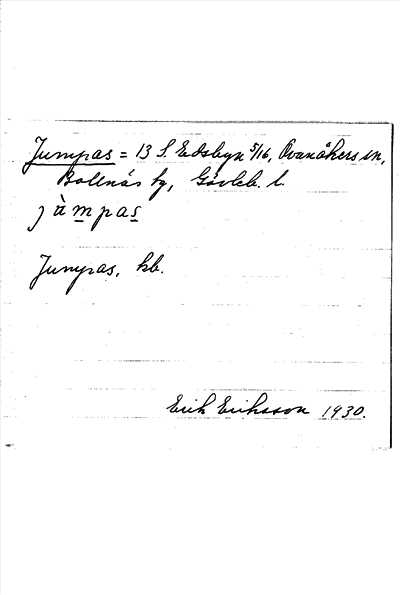 Jumpas = 13 S. Edsbyn 5/16, Ovanåkers sn,
Bollnäs tg, Gävleb. l.
jùmpas
Jumpas, kb.
Erik Eriksson 1930.